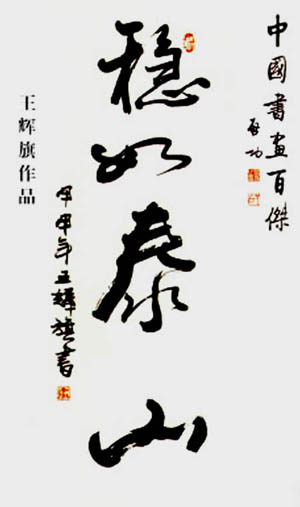 中國書畫百傑
啓功
稳如泰山
甲申年王辉旗书
王辉旗作品